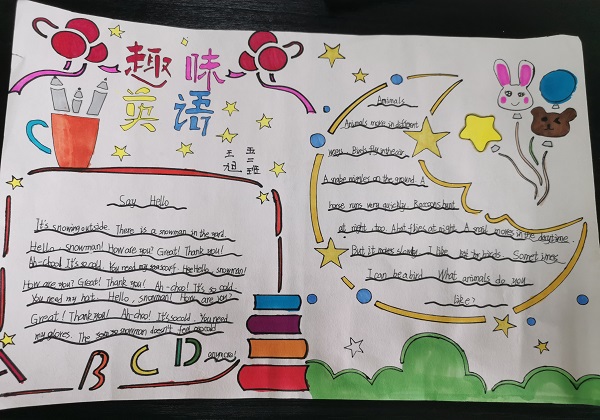 趣味
英语
五二班
Say Hello
It's snowing outside. There is a snowman in the yard.
Hello, snowman! How are you? Great! Thank you!
Ah-choo! It's so cold. You need my scarf. Hello, snowman!
How are you? Great! Thank you! Ah-cho! It's so cold.
You need my hat. Hello, snowman! How are you?
Great! Thank you! Ah-choo! It's so cold. You need
my gloves. The snowman doesn't feel cold
anymore!
A B C D
Animals
Animals move in different
ways. Birds fly in the air.
A snake on the ground. A
horse runs very quickly. hunt
at night, too. A bat flies at night. A goat moves in the daytime.
But it moves slowly. I like birds. Sometimes
I can be a bird. What animals do you
like?